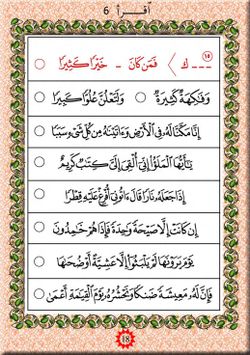 أقرأ 6
١٥
--- ك 〈 فَمَن كَانَ - خَيْرًا كَثِيرًا
وَفَٰكِهَةٍ كَثِيرَةٍ وَلَتَعْلُنَّ عُلُوًّا كَبِيرًا
إِنَّا مَكَّنَّا لَهُۥ فِى ٱلْأَرْضِ وَءَاتَيْنَٰهُ مِن كُلِّ شَىْءٍ سَبَبًا
يَٰٓأَيُّهَا ٱلْمَلَؤُا۟ إِنِّىٓ أُلْقِىَ إِلَىَّ كِتَٰبٌ كَرِيمٌ
إِذَا جَعَلَهُۥ نَارًا قَالَ ءَاتُونِىٓ أُفْرِغْ عَلَيْهِ قِطْرًا
إِن كَانَتْ إِلَّا صَيْحَةً وَٰحِدَةً فَإِذَا هُمْ خَٰمِدُونَ
يَوْمَ يَرَوْنَهَا لَمْ يَلْبَثُوٓا۟ إِلَّا عَشِيَّةً أَوْ ضُحَىٰهَا
فَإِنَّ لَهُۥ مَعِيشَةً ضَنكًا وَنَحْشُرُهُۥ يَوْمَ ٱلْقِيَٰمَةِ أَعْمَىٰ
18